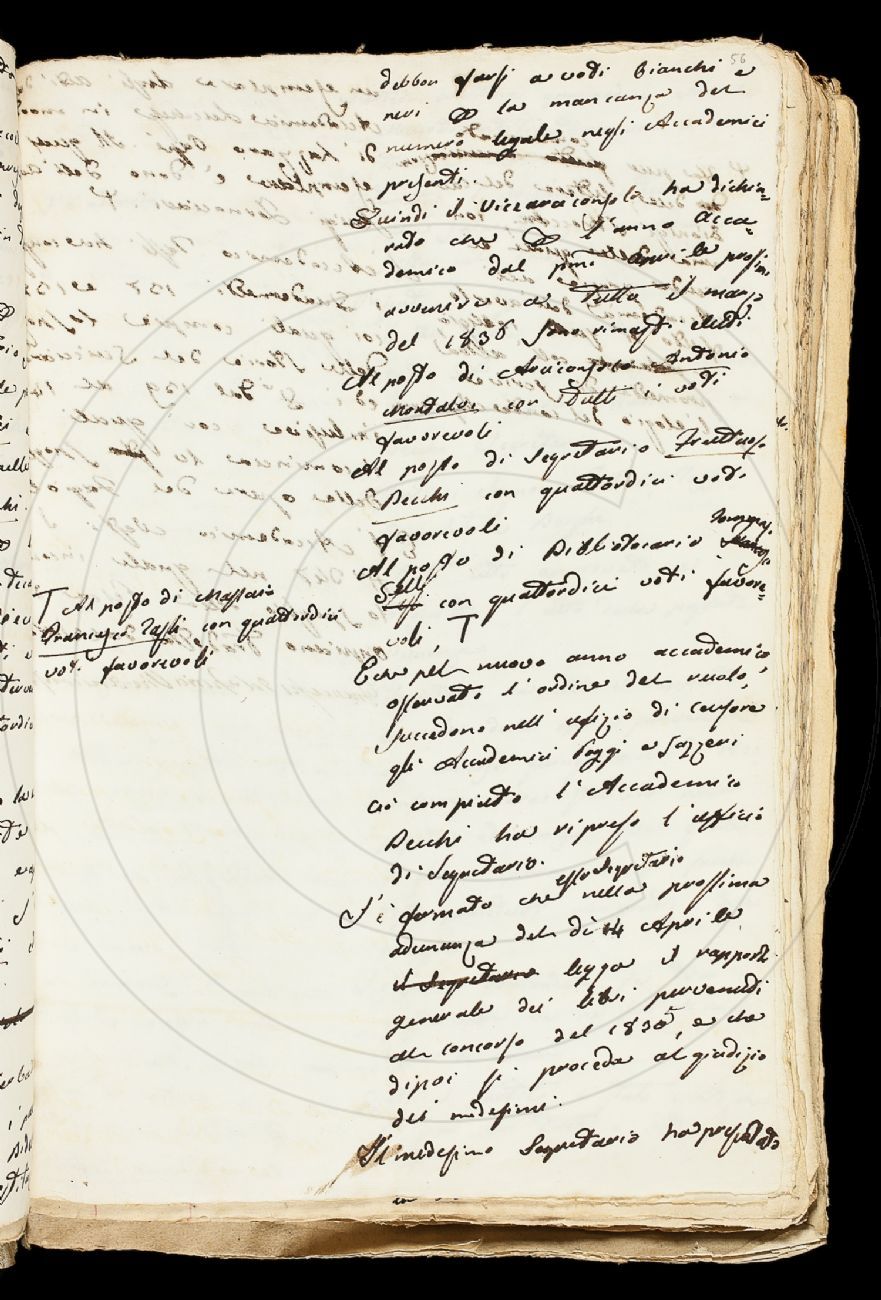 56
debbon farsi a voti bianchi e
neri p la mancanza del
numero legale negli Accademici
presenti.
Quindi il Vicearciconsolo ha dichia=
rato che p l'anno acca=
demico dal pmo Aprile prossimo
avvenire a tutto il marzo
del 1836 sono rimasti eletti
Al posto di Arciconsolo Antonio
Montalvi con tutti i voti
favorevoli
Al posto di Segretario Fruttuoso
Becchi con quattordici voti
favorevoli
Al posto di Bibliotecario Tommaso
Selli con quattordici voti favore=
voli, T
T Al posto di Massaio
Francesco Tassi con quattordici
voti favorevoli
E che pel nuovo anno accademico
osservato l'ordine del ruolo,
succedono nell'ufizio di censore
gli Accademici Poggi e Gazzeri
Ciò compiuto l'Accademico
Becchi ha ripreso l'ufficio
di Segretario.
esso Segretario
S'è fermato che nella prossima
adunanza del dì 14 Aprile
il Segretario legga il rapporto
generale dei libri pervenuti
al concorso del 1830, e che
dipoi si proceda al giudizio
dei medesimi.
Il medesimo Segretario ha presentato